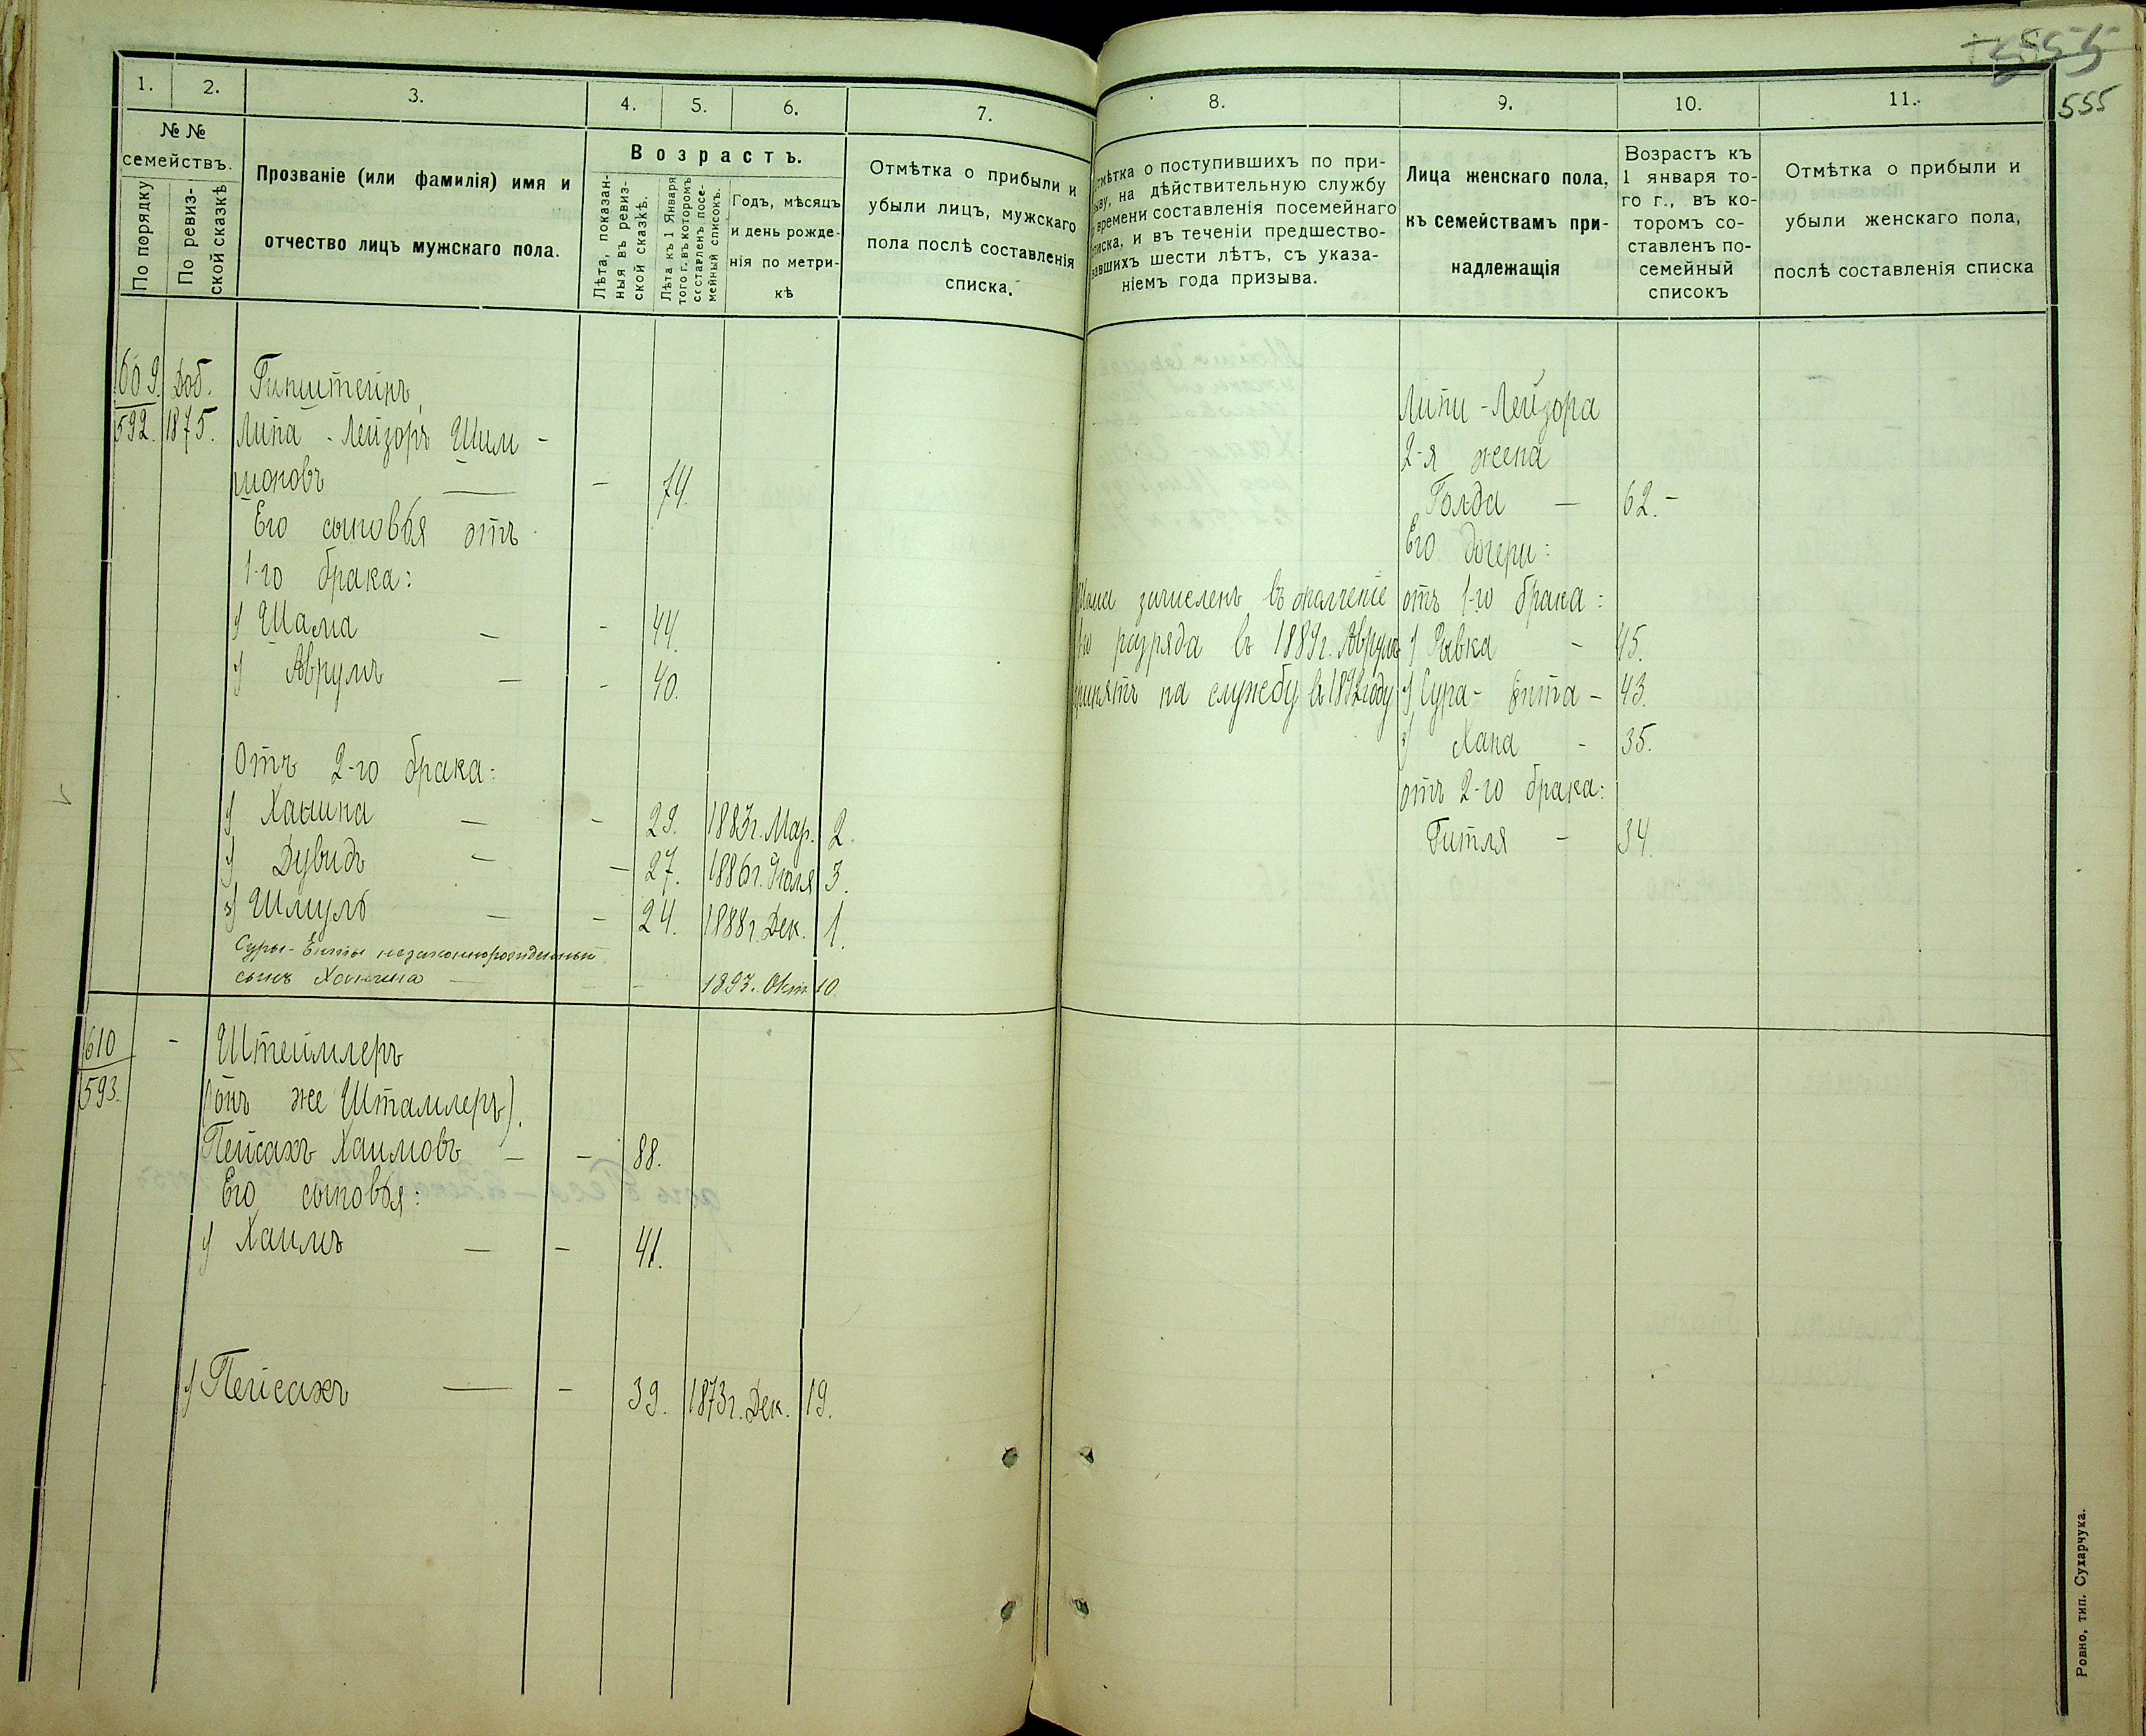 555
555
1.
2.
3.
4.
5.
6.
7.
№ №
семействъ.
По порядку
По ревиз-
ской сказкѣ
Прозваніе (или фамилія) имя и
отчество лицъ мужскаго пола.
Возрастъ.
Лѣта, показан-
ныя въ ревиз-
ской сказкѣ.
Лѣта къ 1 Января
того г. въ которомъ
составленъ посе-
мейный списокъ.
Годъ, мѣсяцъ
и день рожде-
нія по метри-
кѣ
Отмѣтка о прибыли и
убыли лицъ, мужскаго
пола послѣ составленія
списка.
609. Доб.
592. 1875.
Гипштейнъ
Липа - Лейзоръ Шим -
шоновъ — - 74.
Его сыновья отъ
1-го брака:
1) Шама — - 44.
2) Аврумъ — - 40.
Отъ 2-го брака:
1) Ханина — - 29. 1883г. Мар. 2.
2) Дувидъ — - 27. 1886г. Іюля 3.
3) Шмуль — - 24. 1888г. Дек. 1.
Суры-Енты незаконнорожденный
сынъ Ханина — - 1893. Окт. 10.
610 -
593.
Штеймлеръ
(онъ же Штамлеръ).
Пейсахъ Хаимовъ — - 88.
Его сыновья:
1) Хаимъ — - 41.
2) Пейсахъ — - 39. 1873г. Дек. 19.
8.
9.
10.
11.
Отмѣтка о поступившихъ по при-
зыву, на дѣйствительную службу
времени составленія посемейнаго
списка, и въ теченіи предшество-
вавшихъ шести лѣтъ, съ указа-
ніемъ года призыва.
Лица женскаго пола,
къ семействамъ при-
надлежащія
Возрастъ къ
1 января то-
го г., въ ко-
торомъ со-
ставленъ по-
семейный
списокъ
Отмѣтка о прибыли и
убыли женскаго пола,
послѣ составленія списка
Шама зачисленъ въ ополченіе
разряда въ 1889г. Аврумъ
принятъ на службу въ 1892 году
Липи - Лейзора
2-я жена
Голда — 62. -
Его дочери:
отъ 1-го брака:
1) Рывка - 45.
2) Сура - Ента - 43.
3) Хана - 35.
отъ 2-го брака:
Гитля - 34.
Ровно, тип. Сухарчука.